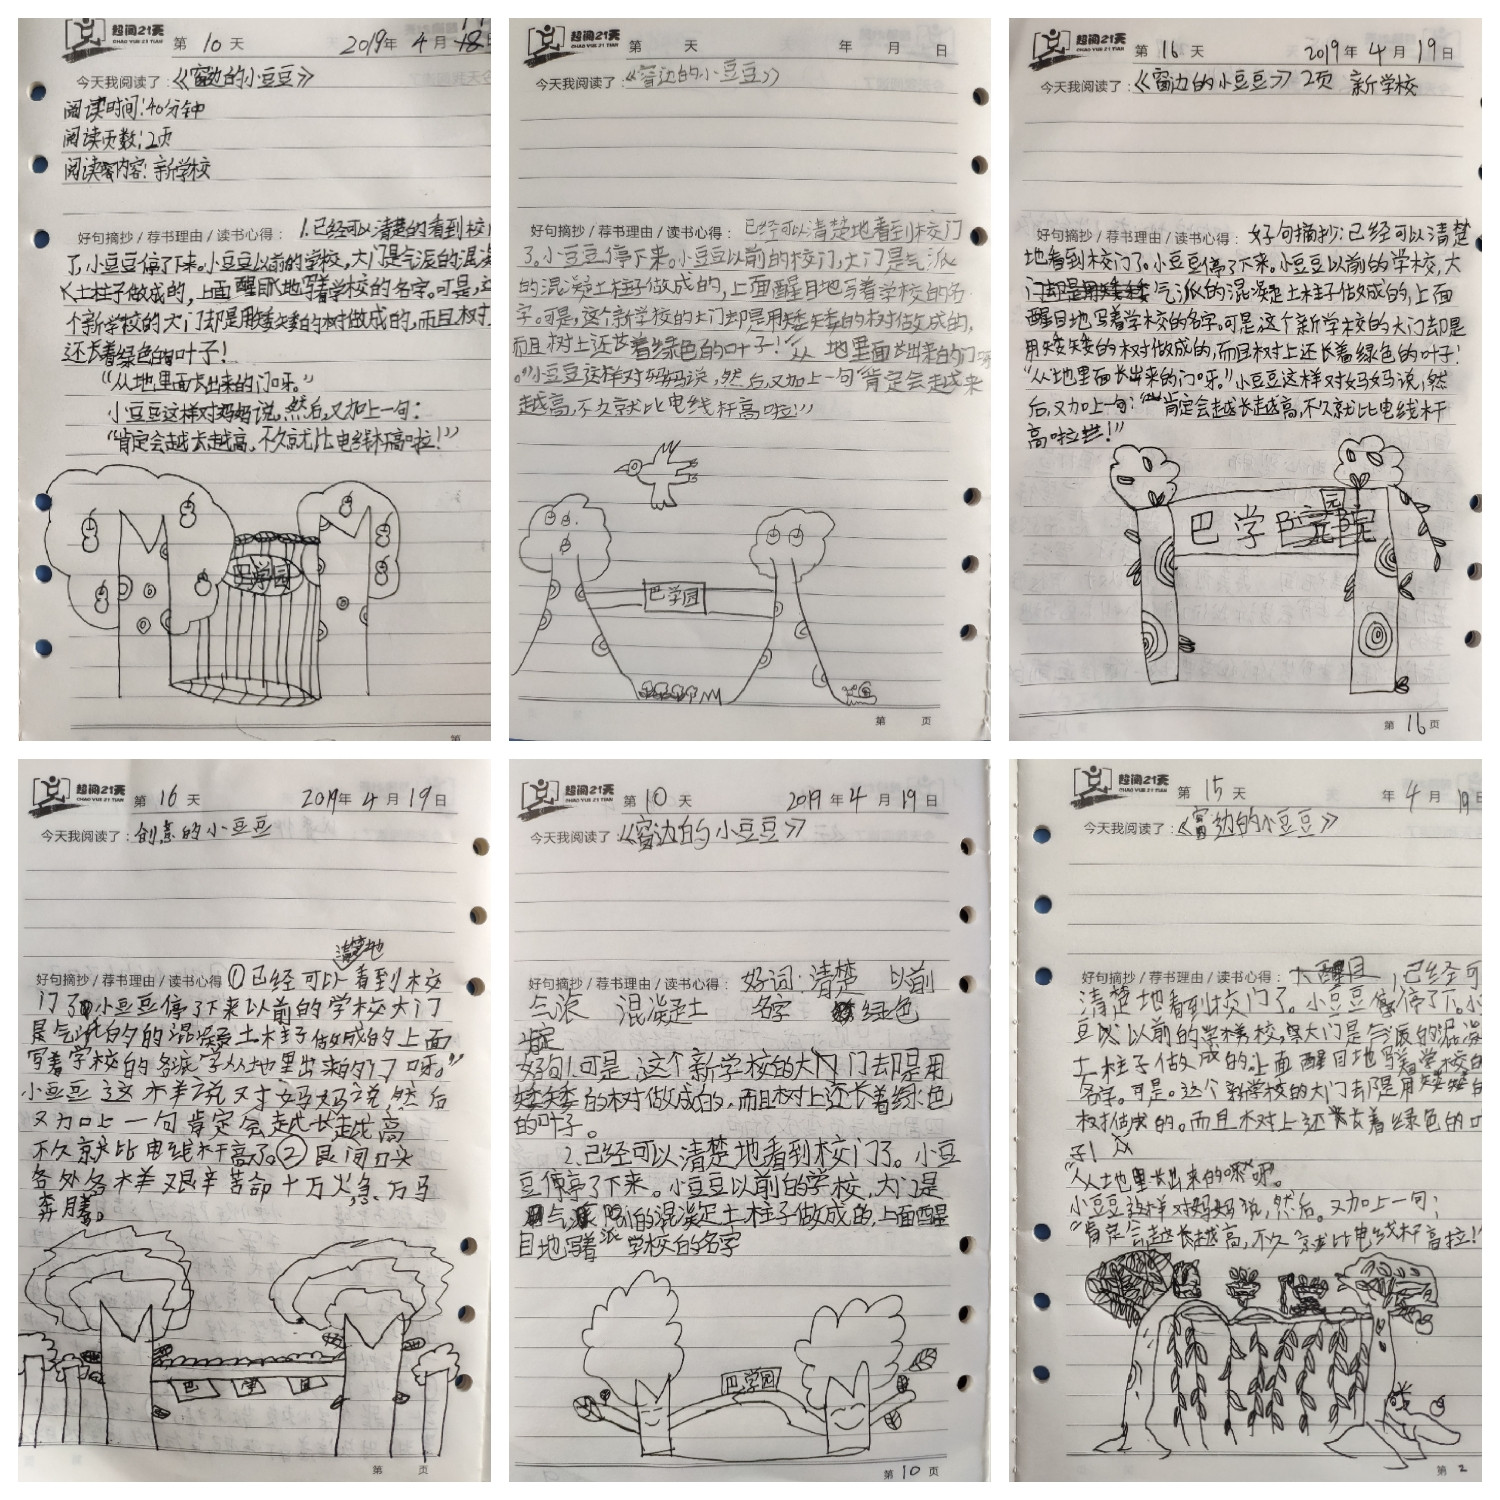 超阅21天
CHAO YUE 21 TIAN
第 10 天 2019年 4 月 18
今天我阅读了：《窗边的小豆豆》
阅读时间：40分钟
阅读页数：2页
阅读内容：新学校
好句摘抄 / 荐书理由 / 读书心得： 1.已经可以清楚的看到校
了，小豆豆停了下来。小豆豆以前的学校，大门是气派的混凝
土柱子做成的，上面醒目地写着学校的名字。可是，
个新学校的大门却是用矮矮的树做成的，而且树
还长着绿色的叶子！
“从地里面长出来的门呀。”
小豆豆这样对妈妈说，然后，又加上一句：
“肯定会越长越高，不久就比电线杆高啦！”
巴学园
第
超阅21天
CHAO YUE 21 TIAN
第 天 年 月 日
今天我阅读了：《窗边的小豆豆》
好句摘抄 / 荐书理由 / 读书心得： 已经可以清楚地看到校门
了。小豆豆停下来。小豆豆以前的校门，大门是气派
的混凝土柱子做成的，上面醒目地写着学校的名
字。可是，这个新学校的大门却是用矮矮的树做成的，
而且树上还长着绿色的叶子！“从 地里面长出来的门呀
。”小豆豆这样对妈妈说，然后，又加上一句“肯定会越来
越高，不久就比电线杆高啦！”
巴学园
第 页
超阅21天
CHAO YUE 21 TIAN
第 16 天 2019 年 4 月 19 日
今天我阅读了：《窗边的小豆豆》 2页 新学校
好句摘抄 / 荐书理由 / 读书心得： 好句摘抄：已经可以清楚
地看到校门了。小豆豆停了下来。小豆豆以前的学校，大
门 气派的混凝土柱子做成的，上面
醒目地写着学校的名字。可是这个新学校的大门却是
用矮矮的树做成的，而且树上还长着绿色的叶子！
“从地里面长出来的门呀。”小豆豆这样对妈妈说，然
后，又加上一句：“肯定会越长越高，不久就比电线杆
高啦！”
巴学园
第 16 页
超阅21天
CHAO YUE 21 TIAN
第 16 天 2019年 4 月 19 日
今天我阅读了：创意的小豆豆
清楚地
好句摘抄 / 荐书理由 / 读书心得 ①已经可以看到校
门了小豆豆停了下来以前的学校大门
是气派的的混凝土柱子做成的上面
写着学校的名 字从地里出来的门呀。”
小豆豆这样说对妈妈说，然后
又加上一句肯定会越长越高
不久就比电线杆高了。② 艮间口头
各处各样艰辛苦命十万火急 万马
奔腾。
巴 学 园
第 页
超阅21天
CHAO YUE 21 TIAN
第 10 天 2019年 4 月 19 日
今天我阅读了：《窗边的小豆豆》
好句摘抄 / 荐书理由 / 读书心得： 好词：清楚 以前
气派 混凝土 名字 绿色
肯定
好句1.可是，这个新学校的大门却是用
矮矮的树做成的，而且树上还长着绿色
的叶子。
2.已经可以清楚地看到校门了。小豆
豆停了下来。小豆豆以前的学校，大门是
气派的混凝土柱子做成的，上面醒
目地写着学校的名字
巴学园
第 10 页
超阅21天
CHAO YUE 21 TIAN
第 15 天 年 4 月 19 日
今天我阅读了：《窗边的小豆豆》
好句摘抄 / 荐书理由 / 读书心得： 大醒目 1，已经可
清楚地看到校门了。小豆豆停了下。小
豆以前的学校，大门是气派的混凝
土柱子做成的。上面醒目地写着学校的
名字。可是。这个新学校的大门却是用矮矮的
树做成的。而且树上还长着绿色的叶
子！
“从地里长出来的呀。
小豆豆这样对妈妈说，然后。又加上一句；
“肯定会越长越高，不久就比电线杆高拉！”
第 2